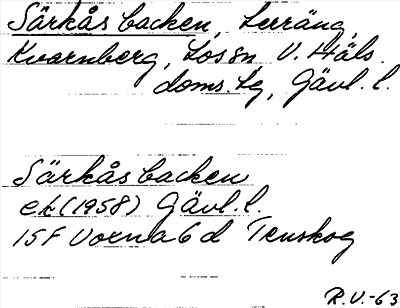 Särkåsbacken, terräng,
Kvarnberg, Los sn, V. Häls.
doms.sg, Gävl. l.
Särkåsbacken
ek (1958) Gävl. l.
15F Vorna 6d Tenskog
R.V.-63